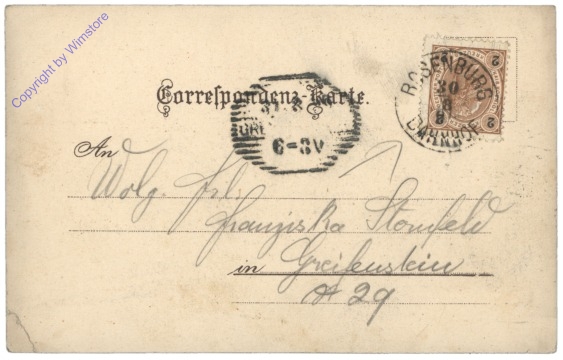 Copyright by Wimstore
Correspondenz-Karte.
2
ROSENBURG
30
8
9
BAHNHOF
6-8V
An
Wolg. Frl.
Franziska
in Greifenstein
29